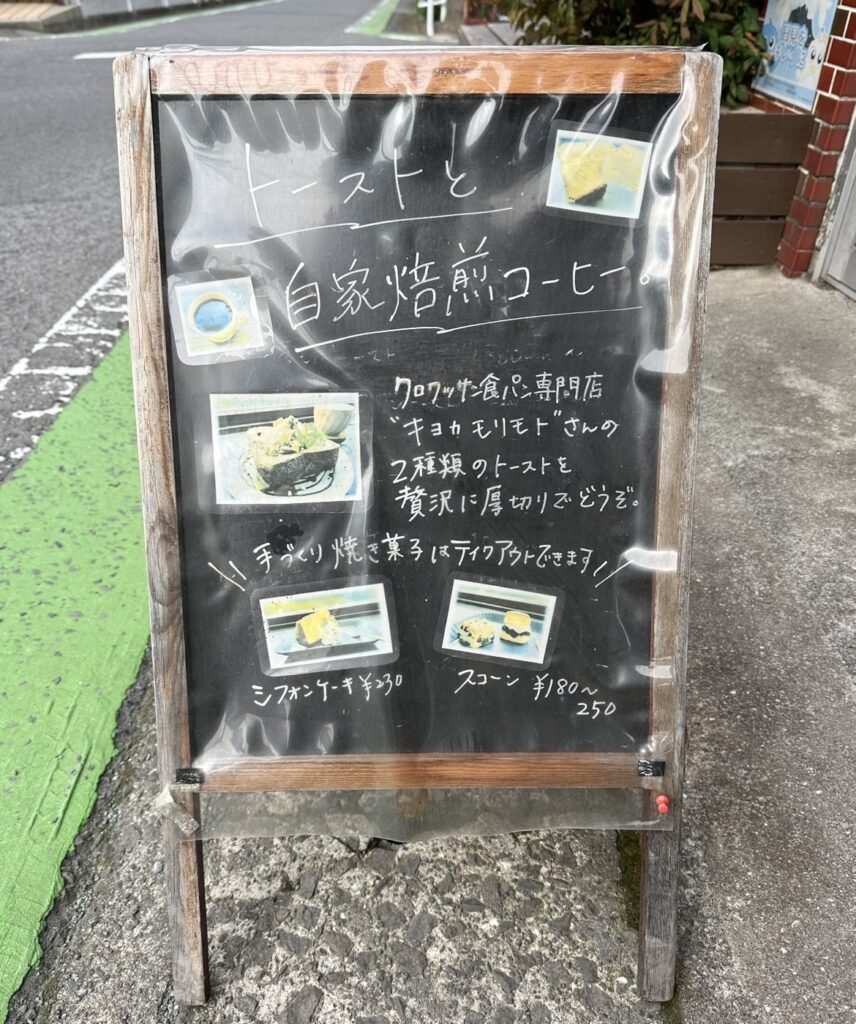 トーストと
自家焙煎コーヒー。
クロワッサン食パン専門店
"キヨカ モリモト"さんの
2種類のトーストを
贅沢に厚切りでどうぞ。
\\ 手づくり焼き菓子はテイクアウトできます //
シフォンケーキ ¥230
スコーン ¥180～
250